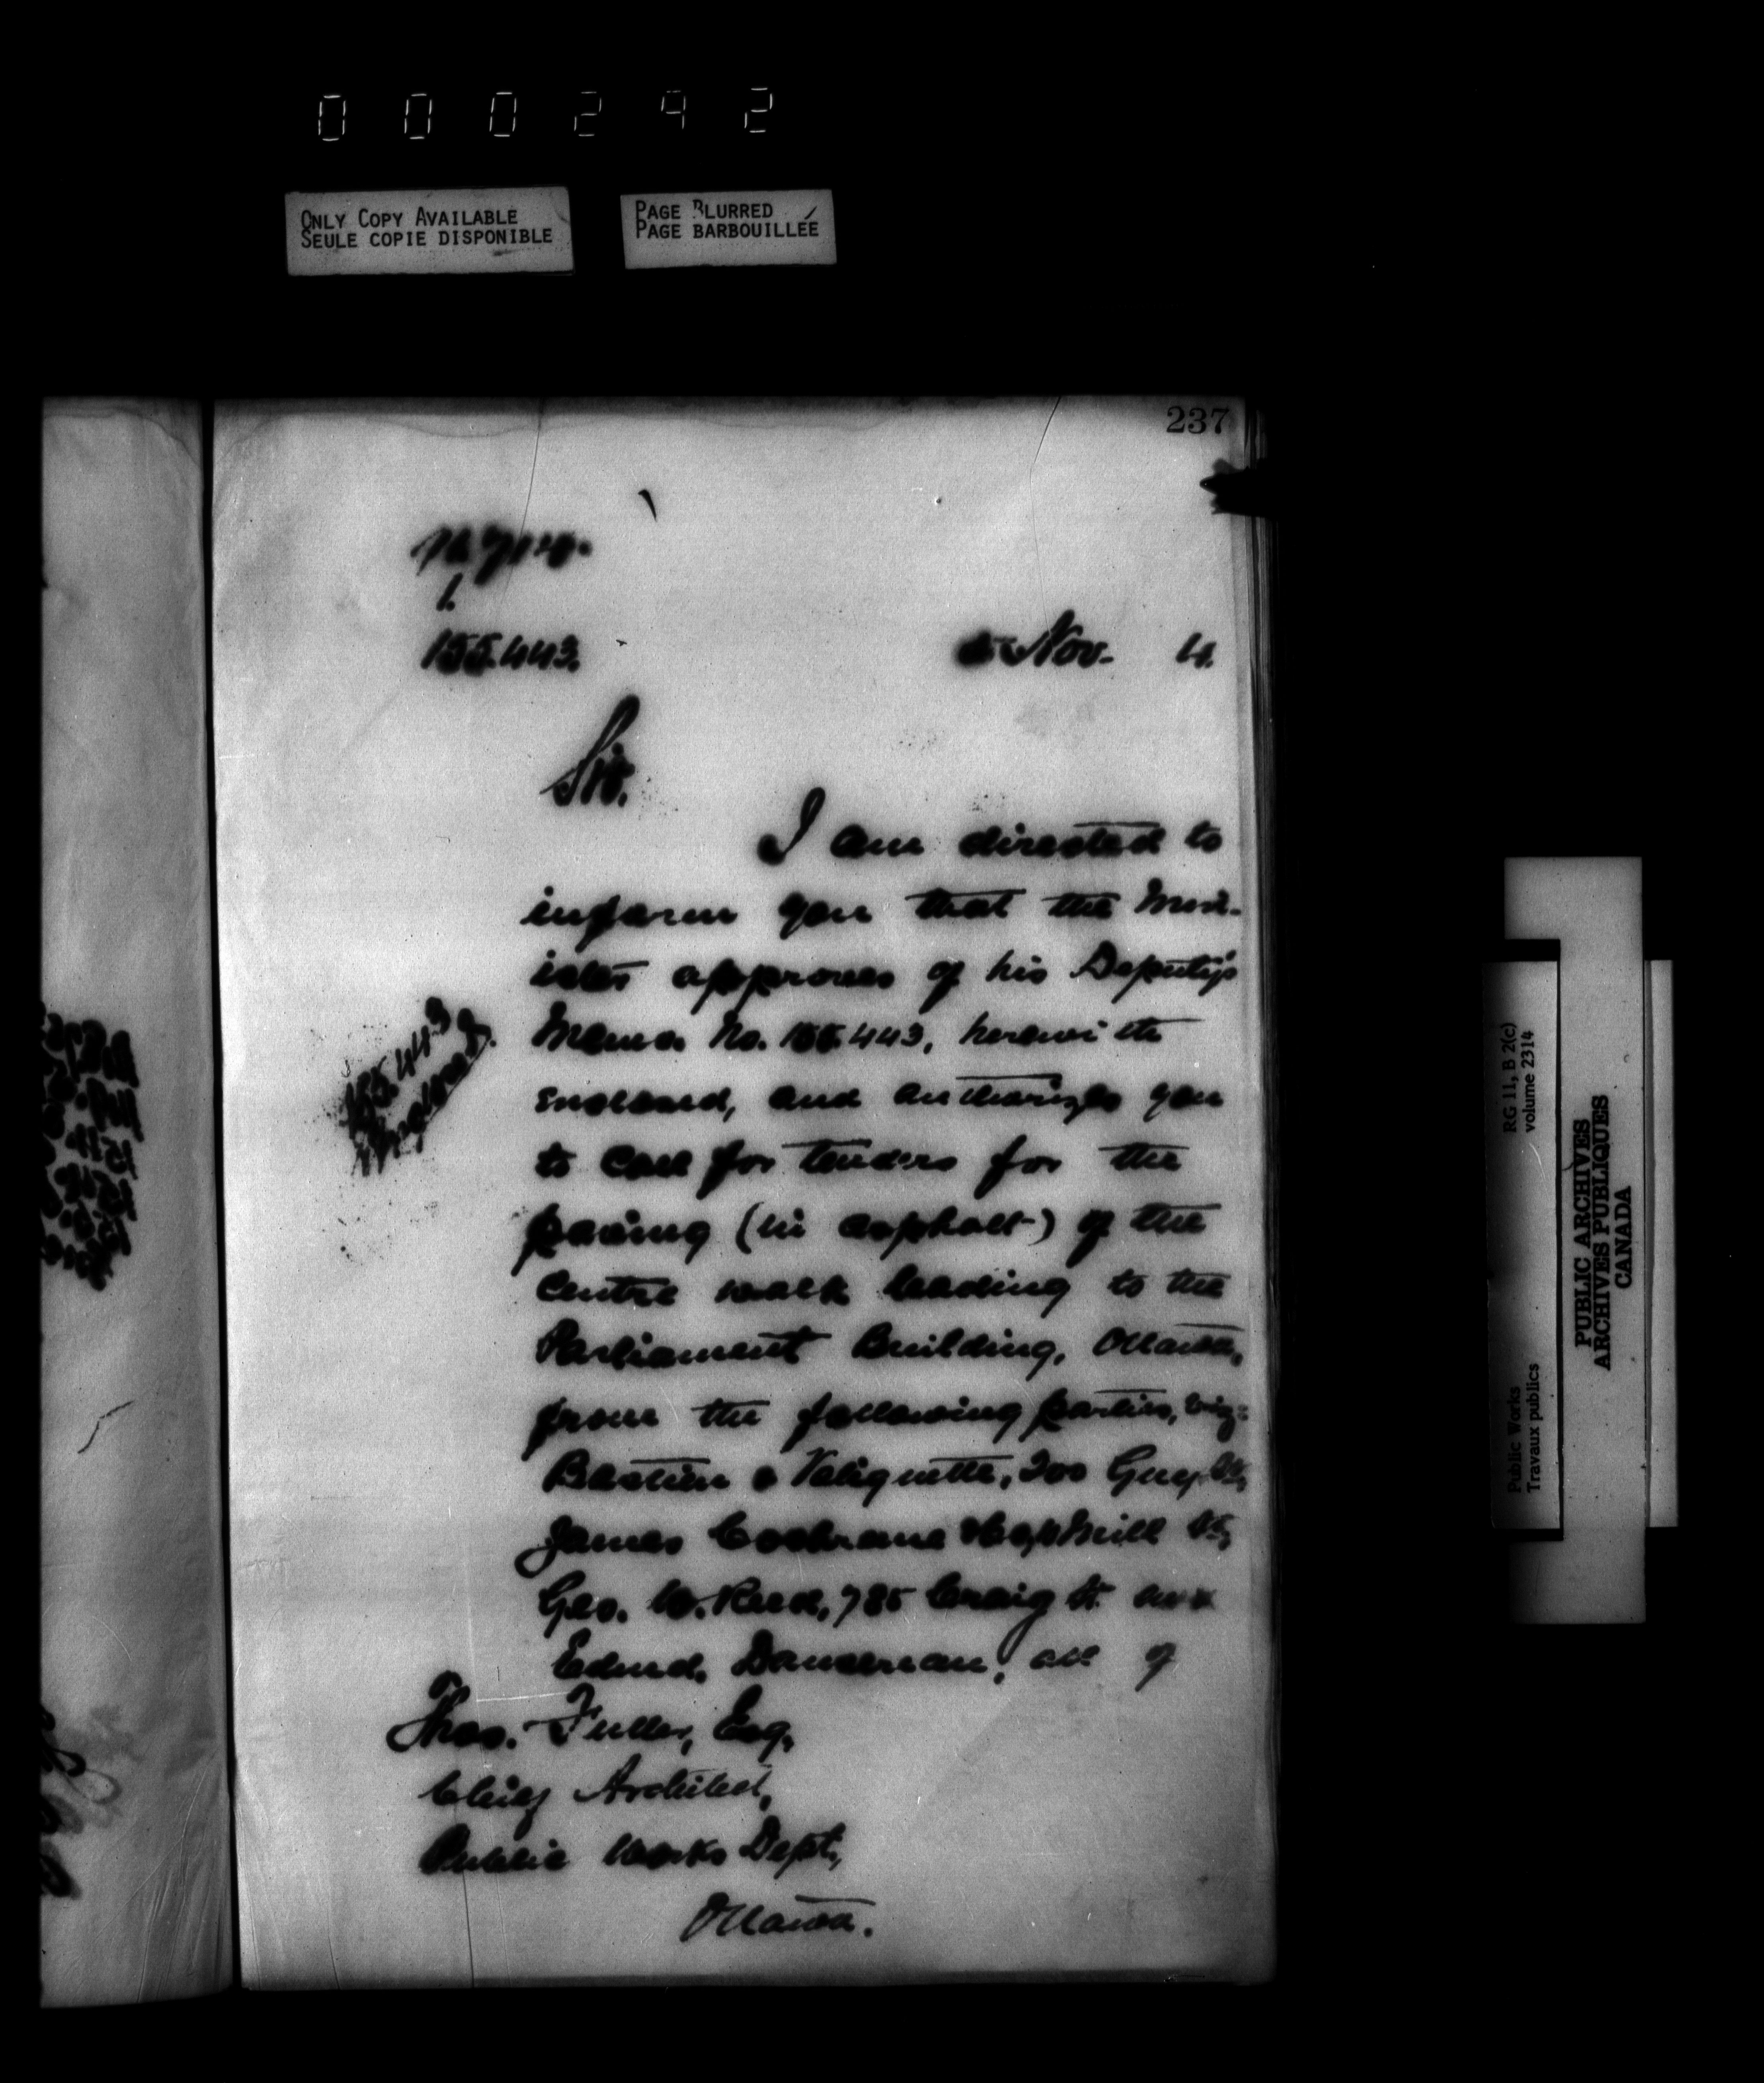 000292
ONLY COPY AVAILABLE
SEULE COPIE DISPONIBLE
PAGE BLURRED
PAGE BARBOUILLÉE
237
1.
155.443.
Nov. 4.
Sir.
I am directed to
inform you that the Min-
ister approves of his Deputy's
Memo. No. 155.443, herewith
enclosed, and authorizes you
155.443
Enclosed.
to call for tenders for the
paving (in asphalt) of the
Centre walk leading to the
Parliament Building, Ottawa,
from the following parties, viz:
Bastien & Valiquette, 200 Guy St,
James Cochrane St,
Geo. W. Reed, 785 Craig St. and
Edmd. Dansereau, all of
Thos. Fuller, Esq,
Chief Architect,
Public Works Dept,
Ottawa.
RG 11, B 2(c)
volume 2314
Public Works
Travaux publics
PUBLIC ARCHIVES
ARCHIVES PUBLIQUES
CANADA